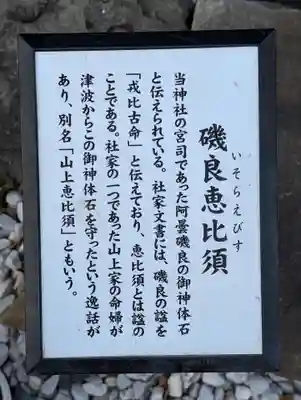 磯良恵比須
いそらえびす
当神社の宮司であった阿曇磯良の御神体石
と伝えられている。社家文書には、磯良の諡を
「戎比古命」と伝えており、恵比須とは諡の
ことである。社家の一つであった山上家の命婦が
津波からこの御神体石を守ったという逸話が
あり、別名「山上恵比須」ともいう。